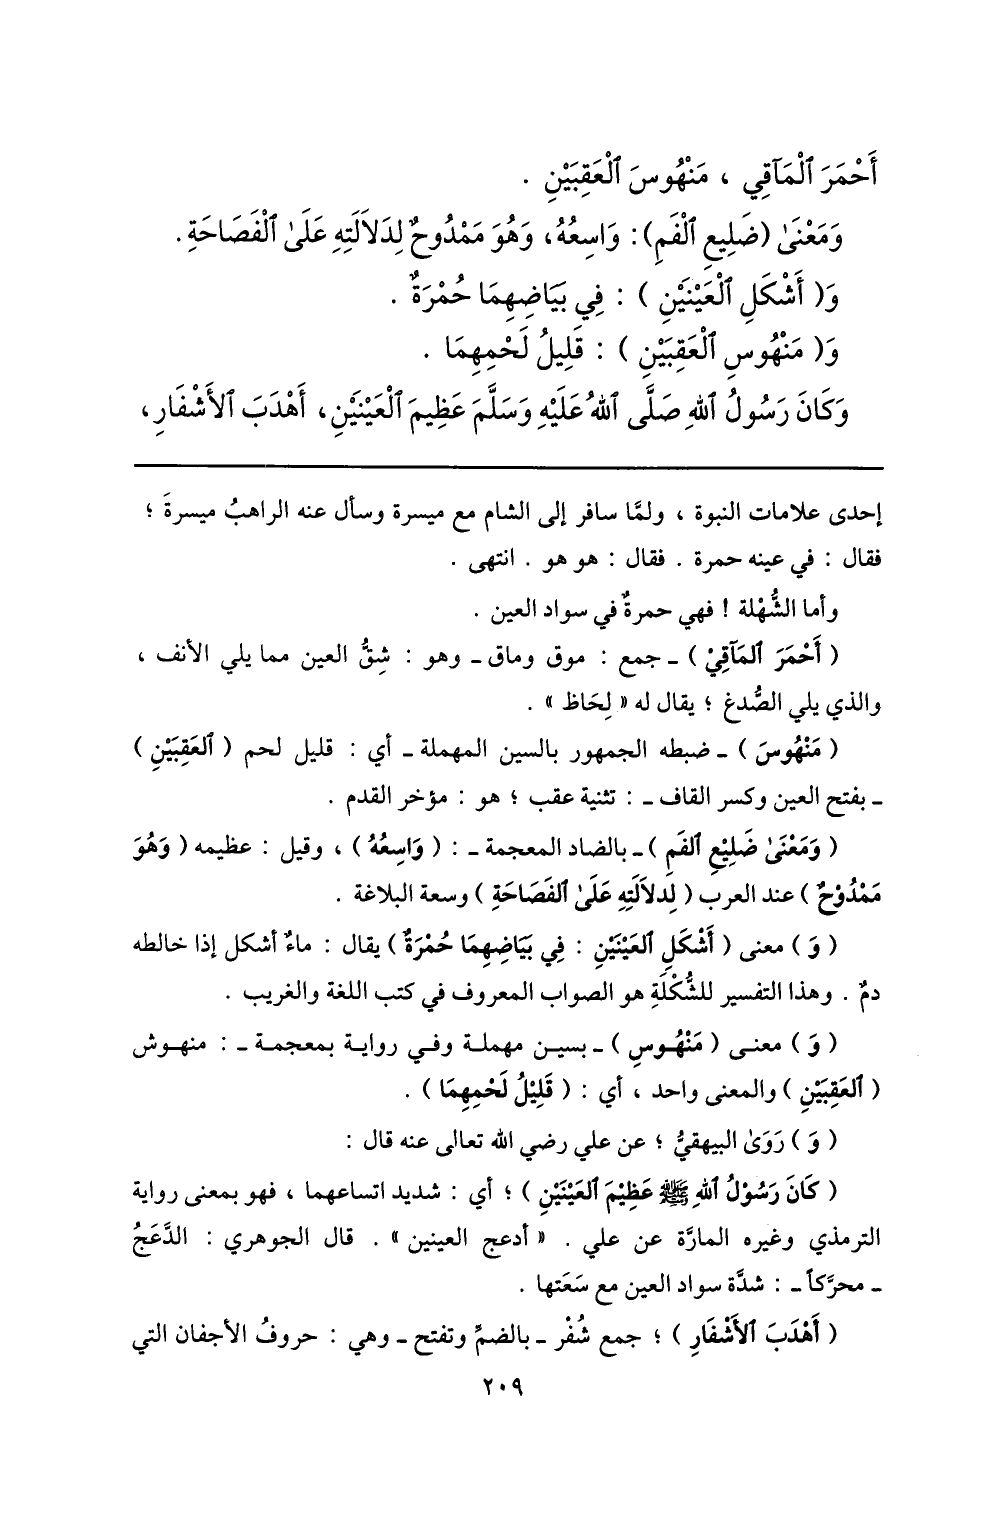 أَحْمَرَ ٱلْمَآقِي ، مَنْهُوسَ ٱلْعَقِبَيْنِ .
وَمَعْنَىٰ (ضَلِيعِ ٱلْفَمِ): وَاسِعُهُ، وَهُوَ مَمْدُوحٌ لِدَلاَلَتِهِ عَلَىٰ ٱلْفَصَاحَةِ.
وَ( أَشْكَلِ ٱلْعَيْنَيْنِ ) : فِي بَيَاضِهِمَا حُمْرَةٌ .
وَ( مَنْهُوسِ ٱلْعَقِبَيْنِ ) : قَلِيلُ لَحْمِهِمَا .
وَكَانَ رَسُولُ ٱللهِ صَلَّى ٱللهُ عَلَيْهِ وَسَلَّمَ عَظِيمَ ٱلْعَيْنَيْنِ، أَهْدَبَ ٱلأَشْفَارِ،
إحدى علامات النبوة ، ولمَّا سافر إلى الشام مع ميسرة وسأل عنه الراهبُ ميسرةَ ؛
فقال : في عينه حمرة . فقال : هو هو . انتهى .
وأما الشُّهْلة ! فهي حمرةٌ في سواد العين .
( أَحْمَرَ ٱلمَآقِيْ ) ـ جمع : موق وماق ـ وهو : شِقُّ العين مما يلي الأنف ،
والذي يلي الصُّدغ ؛ يقال له « لِحَاظ » .
( مَنْهُوسَ ) ـ ضبطه الجمهور بالسين المهملة ـ أي : قليل لحم ( ٱلعَقِبَيْنِ )
ـ بفتح العين وكسر القاف ـ : تثنية عقب ؛ هو : مؤخر القدم .
( وَمَعْنَىٰ ضَلِيْعِ ٱلفَمِ ) ـ بالضاد المعجمة ـ : ( وَاسِعُهُ ) ، وقيل : عظيمه ( وَهُوَ
مَمْدُوْحٌ ) عند العرب ( لِدلاَلَتِهِ عَلَىٰ ٱلفَصَاحَةِ ) وسعة البلاغة .
( وَ ) معنى ( أَشْكَلِ ٱلعَيْنَيْنِ : فِي بَيَاضِهِمَا حُمْرَةٌ ) يقال : ماءٌ أشكل إذا خالطه
دمٌ . وهذا التفسير للشُّكْلَةِ هو الصواب المعروف في كتب اللغة والغريب .
( وَ ) معنى ( مَنْهُوسِ ) ـ بسين مهملة وفي رواية بمعجمة ـ : منهوش
( ٱلعَقِبَيْنِ ) والمعنى واحد ، أي : ( قَلِيْلُ لَحْمِهِمَا ) .
( وَ ) رَوَىٰ البيهقيُّ ؛ عن علي رضي الله تعالى عنه قال :
( كَانَ رَسُوْلُ ٱللهِ ﷺ عَظِيْمَ ٱلعَيْنَيْنِ ) ؛ أي : شديد اتساعهما ، فهو بمعنى رواية
الترمذي وغيره المارَّة عن علي . « أدعج العينين » . قال الجوهري : الدَّعَجُ
ـ محرَّكاً ـ : شدَّة سواد العين مع سَعَتها .
( أَهْدَبَ ٱلأَشْفَارِ ) ؛ جمع شُفْر ـ بالضمِّ وتفتح ـ وهي : حروفُ الأجفان التي
٢٠٩